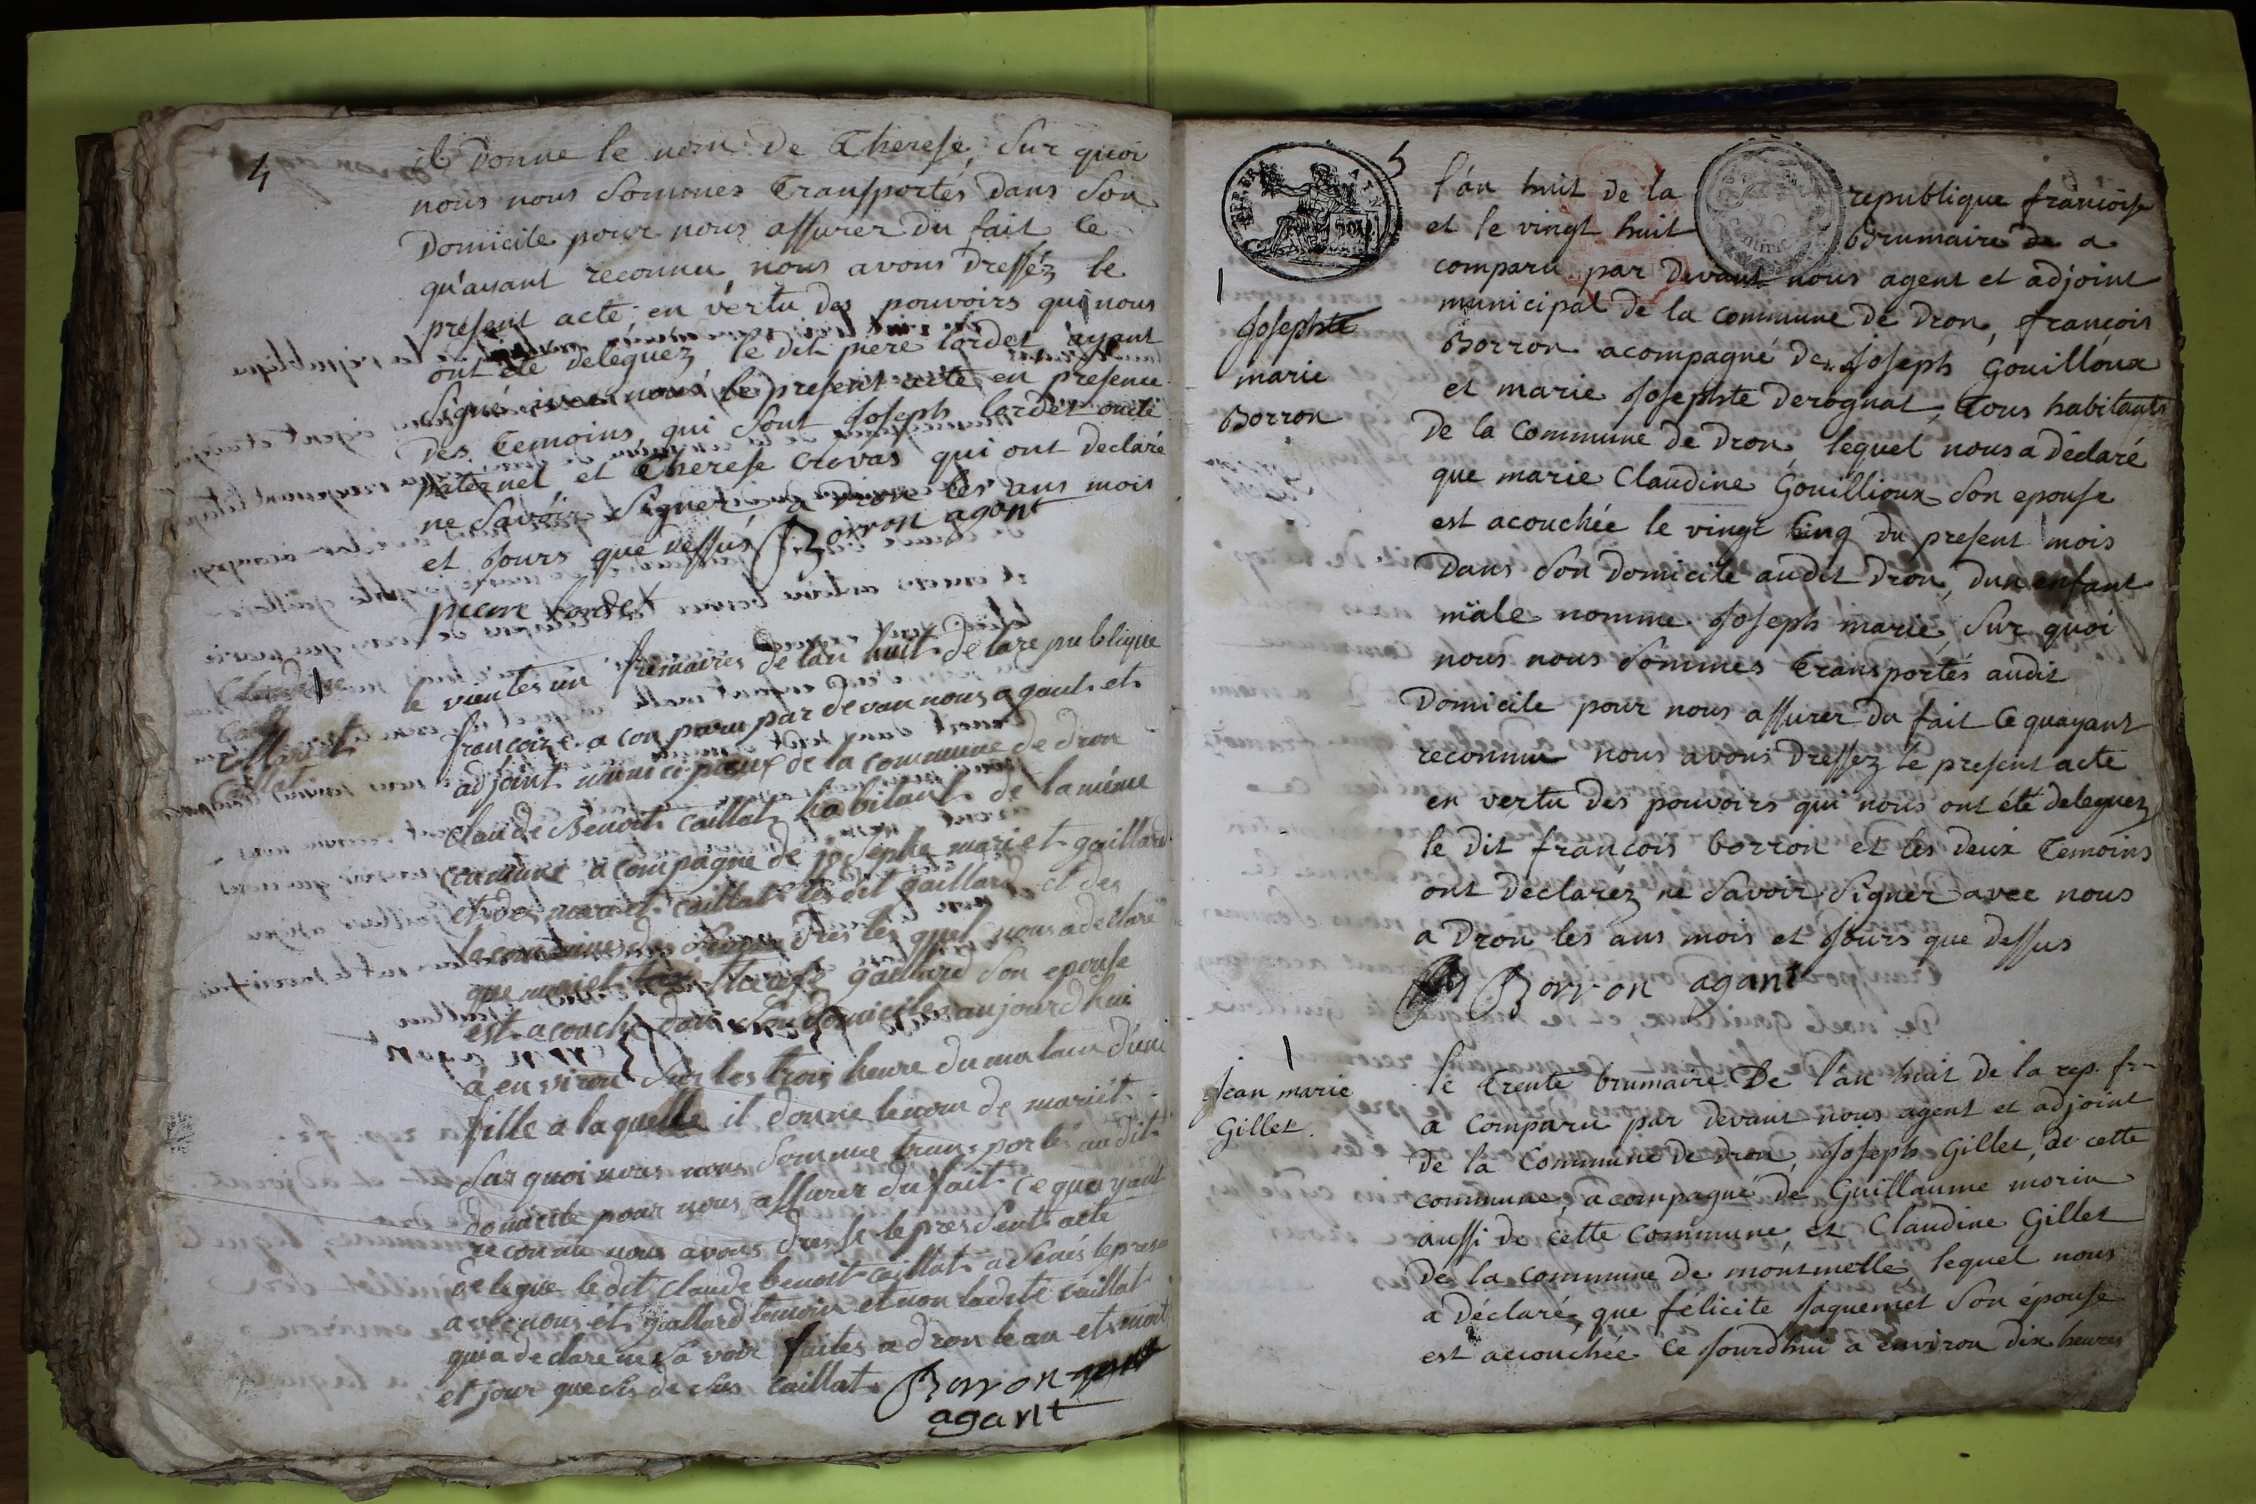 4
il donne le nom de Therese, Sur quoi
nous nous Sommes Transportés dans Son
Domicile pour nous assurer du fait Ce
qu'ayant reconnu nous avons Dresséz le
présent acte, en vertu des pouvoirs qui nous
ont été deleguez le dit pierre lordet ayant
Signé avec nous le present acte en presence
des Temoins qui Sont Joseph lordet oncle
paternel et Therese Crovas qui ont declaré
ne Savoir Signer a Dron les ans mois
et Jours que dessus Borron agant
pierre lordet
Claudine
mariet
Caillat
le vientes un frimaires de lan huit de lare publique
françoize a con paru par devan nous agant et
adjoint municipaux de la commune de dron
claude Benoit caillat habitant de la méme
commune a compagne de josephe mariet gaillard
et de mariet caillat les dit gaillard et des
la commune de dron les quel nous a declaré
que mariet gaillard Son epouse
est acouché dans Son domicile aujourdhui
à environ Sur les trois heure du matain d'une
fille a laquelle il donne le nom de mariét
Sur quoi nous nous Somme trans porté au dit
domicile pour nous assurer du fait Ce quayant
reconnu nous avons dressé le pres Sent acte
delegue le dit claude benoit caillat a Sinés le pres
avec nous ét gaillard temoin et non ladite caillat
qui a declare ne Sa voir faites a dron le an et moit
et jour que de Sus Caillat Borron
agant
5
l'án huit de la republique françoise
et le vingt huit Brumaire a
comparu par devant nous agent et adjoint
municipal de la commune de Dron, françois
Borron acompagné de Joseph Gouilloux
et marie Josephte Derognat, Tous habitants
de la Commune de Dron, lequel nous a déclaré
que marie Claudine Gouillioux Son epouse
est acouchée le vingt Cinq du present mois
Dans Son Domicile audit Dron, dun enfant
mâle nomme Joseph marie, Sur quoi
nous nous Sommes Transportés audit
Domicile pour nous assurer du fait Ce quayant
reconnu nous avons Dressez le present acte
en vertu des pouvoirs qui nous ont été deleguez
le dit francois borron et les deux Temoins
ont declaréz ne Savoir Signer avec nous
a Dron les ans mois et Jours que dessus
Borron agant
Josephte
marie
Borron
Jean marie
Gillet.
le Trente brumaire De l'án huit de la rep. fr
a Comparu par devant nous agent et adjoint
de la Commune de Dron, Joseph Gillet, de cette
commune, acompagné de Guillaume morin
aussi de cette Commune, et Claudine Gillet
de la commune de montmelle lequel nous
a déclaré, que felicite Jaquemet Son épouse
est accouchée Ce Jourdhui a environ dix heures